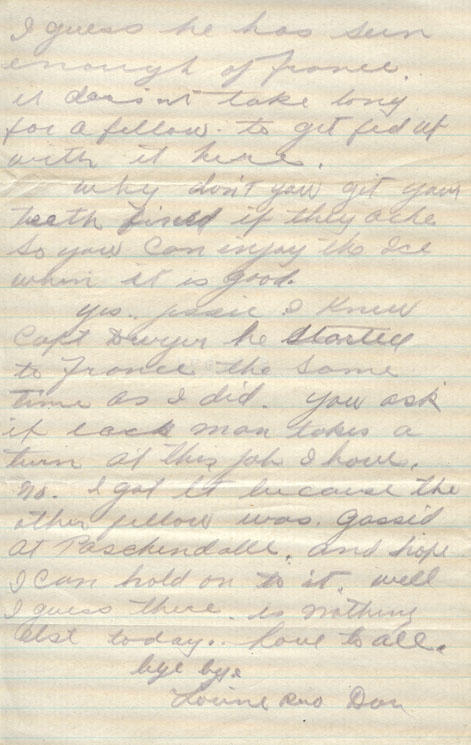 I guess he has seen
enough of france.
it doesn't take long
for a fellow. to get fed up
with it here.
why don't you get your
teeth fixed if they ache
so you can enjoy the Ice
when it is good.
yes. jessie I knew
Capt Dwyer he started
to France the same
time as I did. you ask
if each man takes a
turn at this job I have.
no. I got it because the
other fellow was. gassed
at Paschendalle. and hope
I can hold on to it. well
I guess there. is nothing
else today.. love to all.
bye bye.
Don